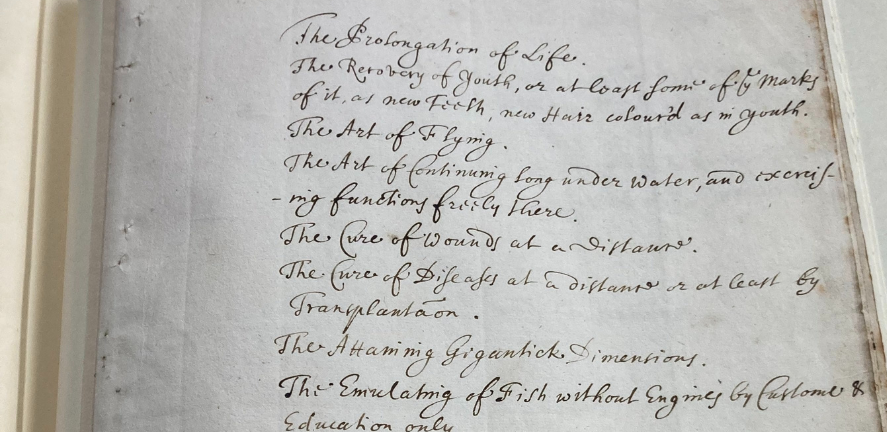 The Prolongation of Life.
The Recovery of Youth, or at least some of yͤ Marks
of it, as new Teeth, new Hair colour'd as in youth.
The Art of Flying.
The Art of Continuing long under water, and exercis-
-ing functions freely there.
The Cure of Wounds at a Distance.
The Cure of Diseases at a distance or at least by
Transplantãon.
The Attaining Gigantick Dimensions.
The Emulating of Fish without Engines by Custome &
Education only